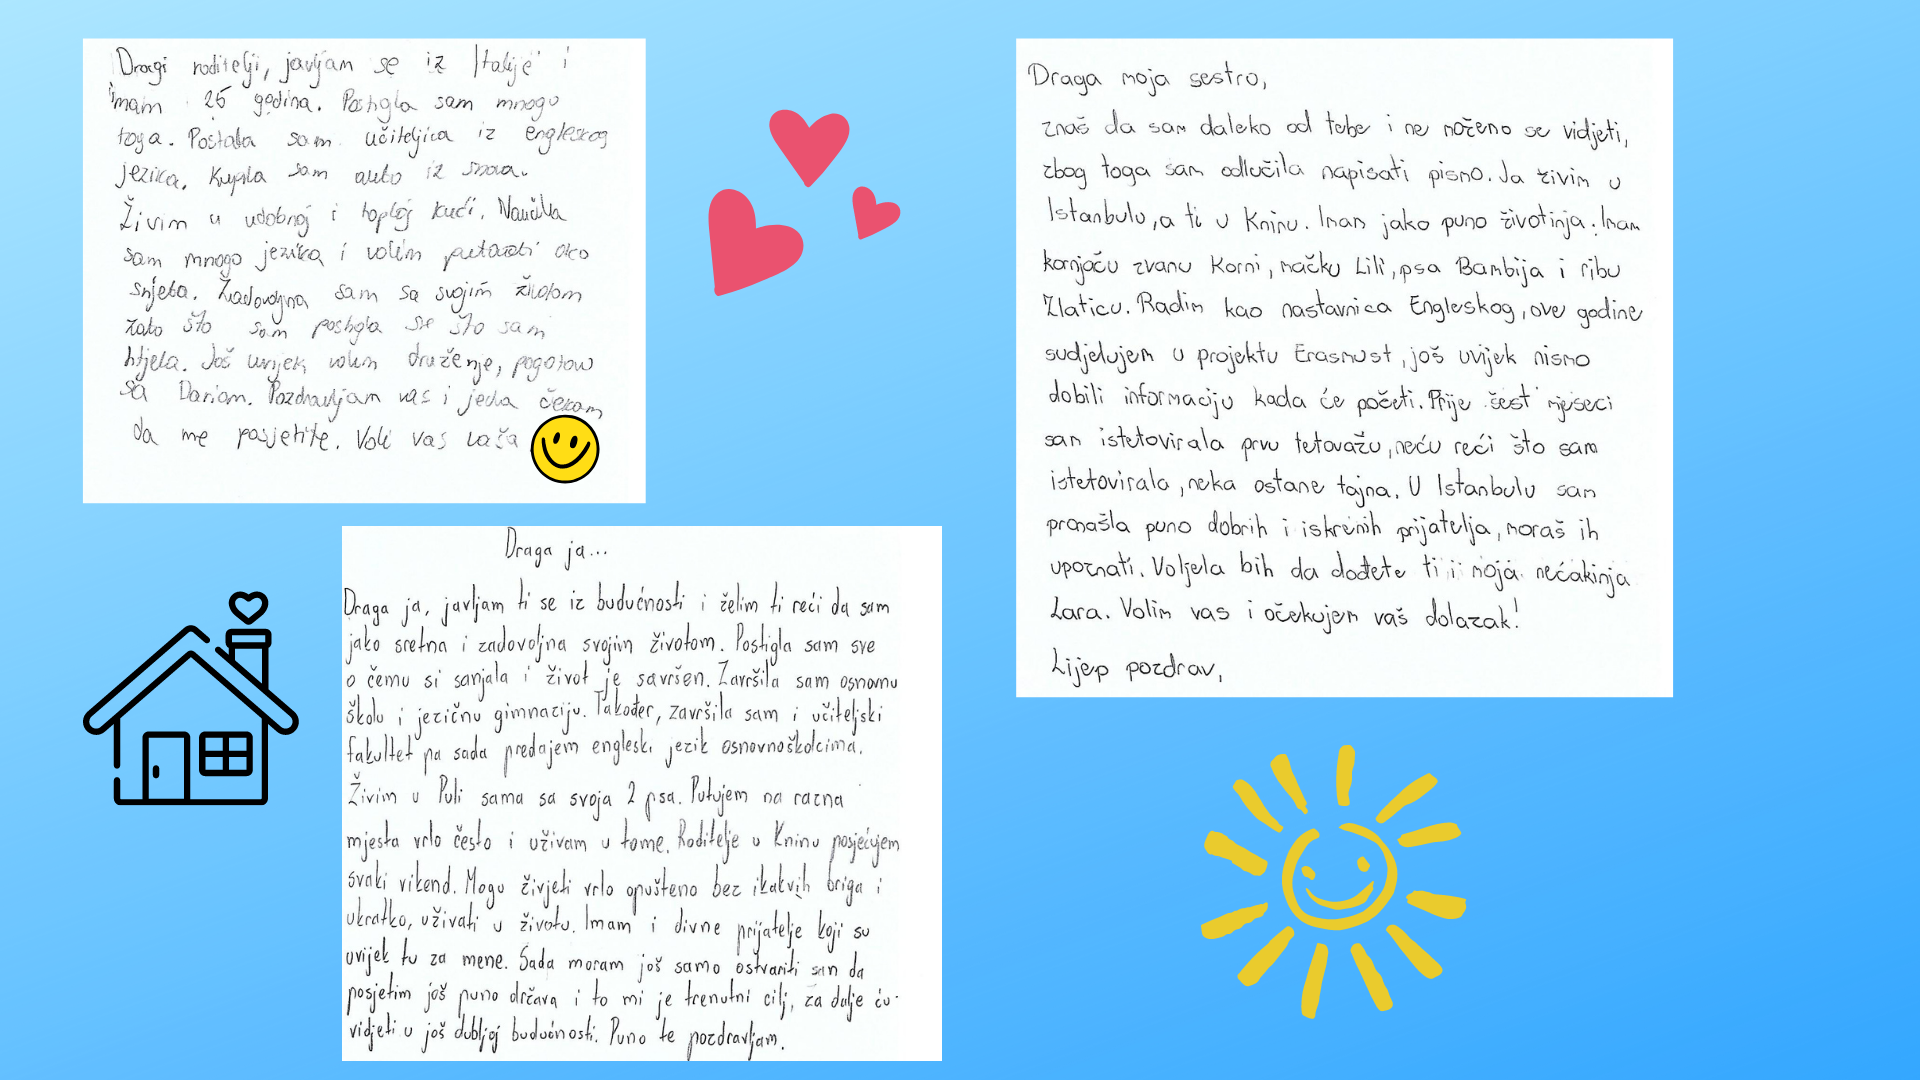 Dragi roditelji, javljam se iz Italije i
imam 25 godina. Postigla sam mnogo
toga. Postala sam učiteljica iz engleskog
jezika. Kupila sam auto iz snova.
Živim u udobnoj i toploj kući. Naučila
sam mnogo jezika i volim putovati oko
svijeta. Zadovoljna sam sa svojim životom
zato što sam postigla sve što sam
htjela. Još uvijek volim druženje, pogotovo
sa Dariom. Pozdravljam vas i jedva čekam
da me posjetite. Voli vas vaša
Draga ja...
Draga ja, javljam ti se iz budućnosti i želim ti reći da sam
jako sretna i zadovoljna svojim životom. Postigla sam sve
o čemu si sanjala i život je savršen. Završila sam osnovnu
školu i jezičnu gimnaziju. Također, završila sam i učiteljski
fakultet pa sada predajem engleski jezik osnovnoškolcima.
Živim u Puli sama sa svoja 2 psa. Putujem na razna
mjesta vrlo često i uživam u tome. Roditelje u Kninu posjećujem
svaki vikend. Mogu živjeti vrlo opušteno bez ikakvih briga i
ukratko, uživati u životu. Imam i divne prijatelje koji su
uvijek tu za mene. Sada moram još samo ostvariti san da
posjetim još puno država i to mi je trenutni cilj, za dalje ću
vidjeti u još dubljoj budućnosti. Puno te pozdravljam.
Draga moja sestro,
znaš da sam daleko od tebe i ne možemo se vidjeti,
zbog toga sam odlučila napisati pismo. Ja živim u
Istanbulu, a ti u Kninu. Imam jako puno životinja. Imam
kornjaču zvanu Korni, mačku Lili, psa Bambija i ribu
Zlaticu. Radim kao nastavnica Engleskog, ove godine
sudjelujem u projektu Erasmust, još uvijek nismo
dobili informaciju kada će početi. Prije šest mjeseci
sam istetovirala prvu tetovažu, neću reći što sam
istetovirala, neka ostane tajna. U Istanbulu sam
pronašla puno dobrih i iskrenih prijatelja, moraš ih
upoznati. Voljela bih da dođete ti i moja nećakinja
Lara. Volim vas i očekujem vaš dolazak!
Lijep pozdrav,